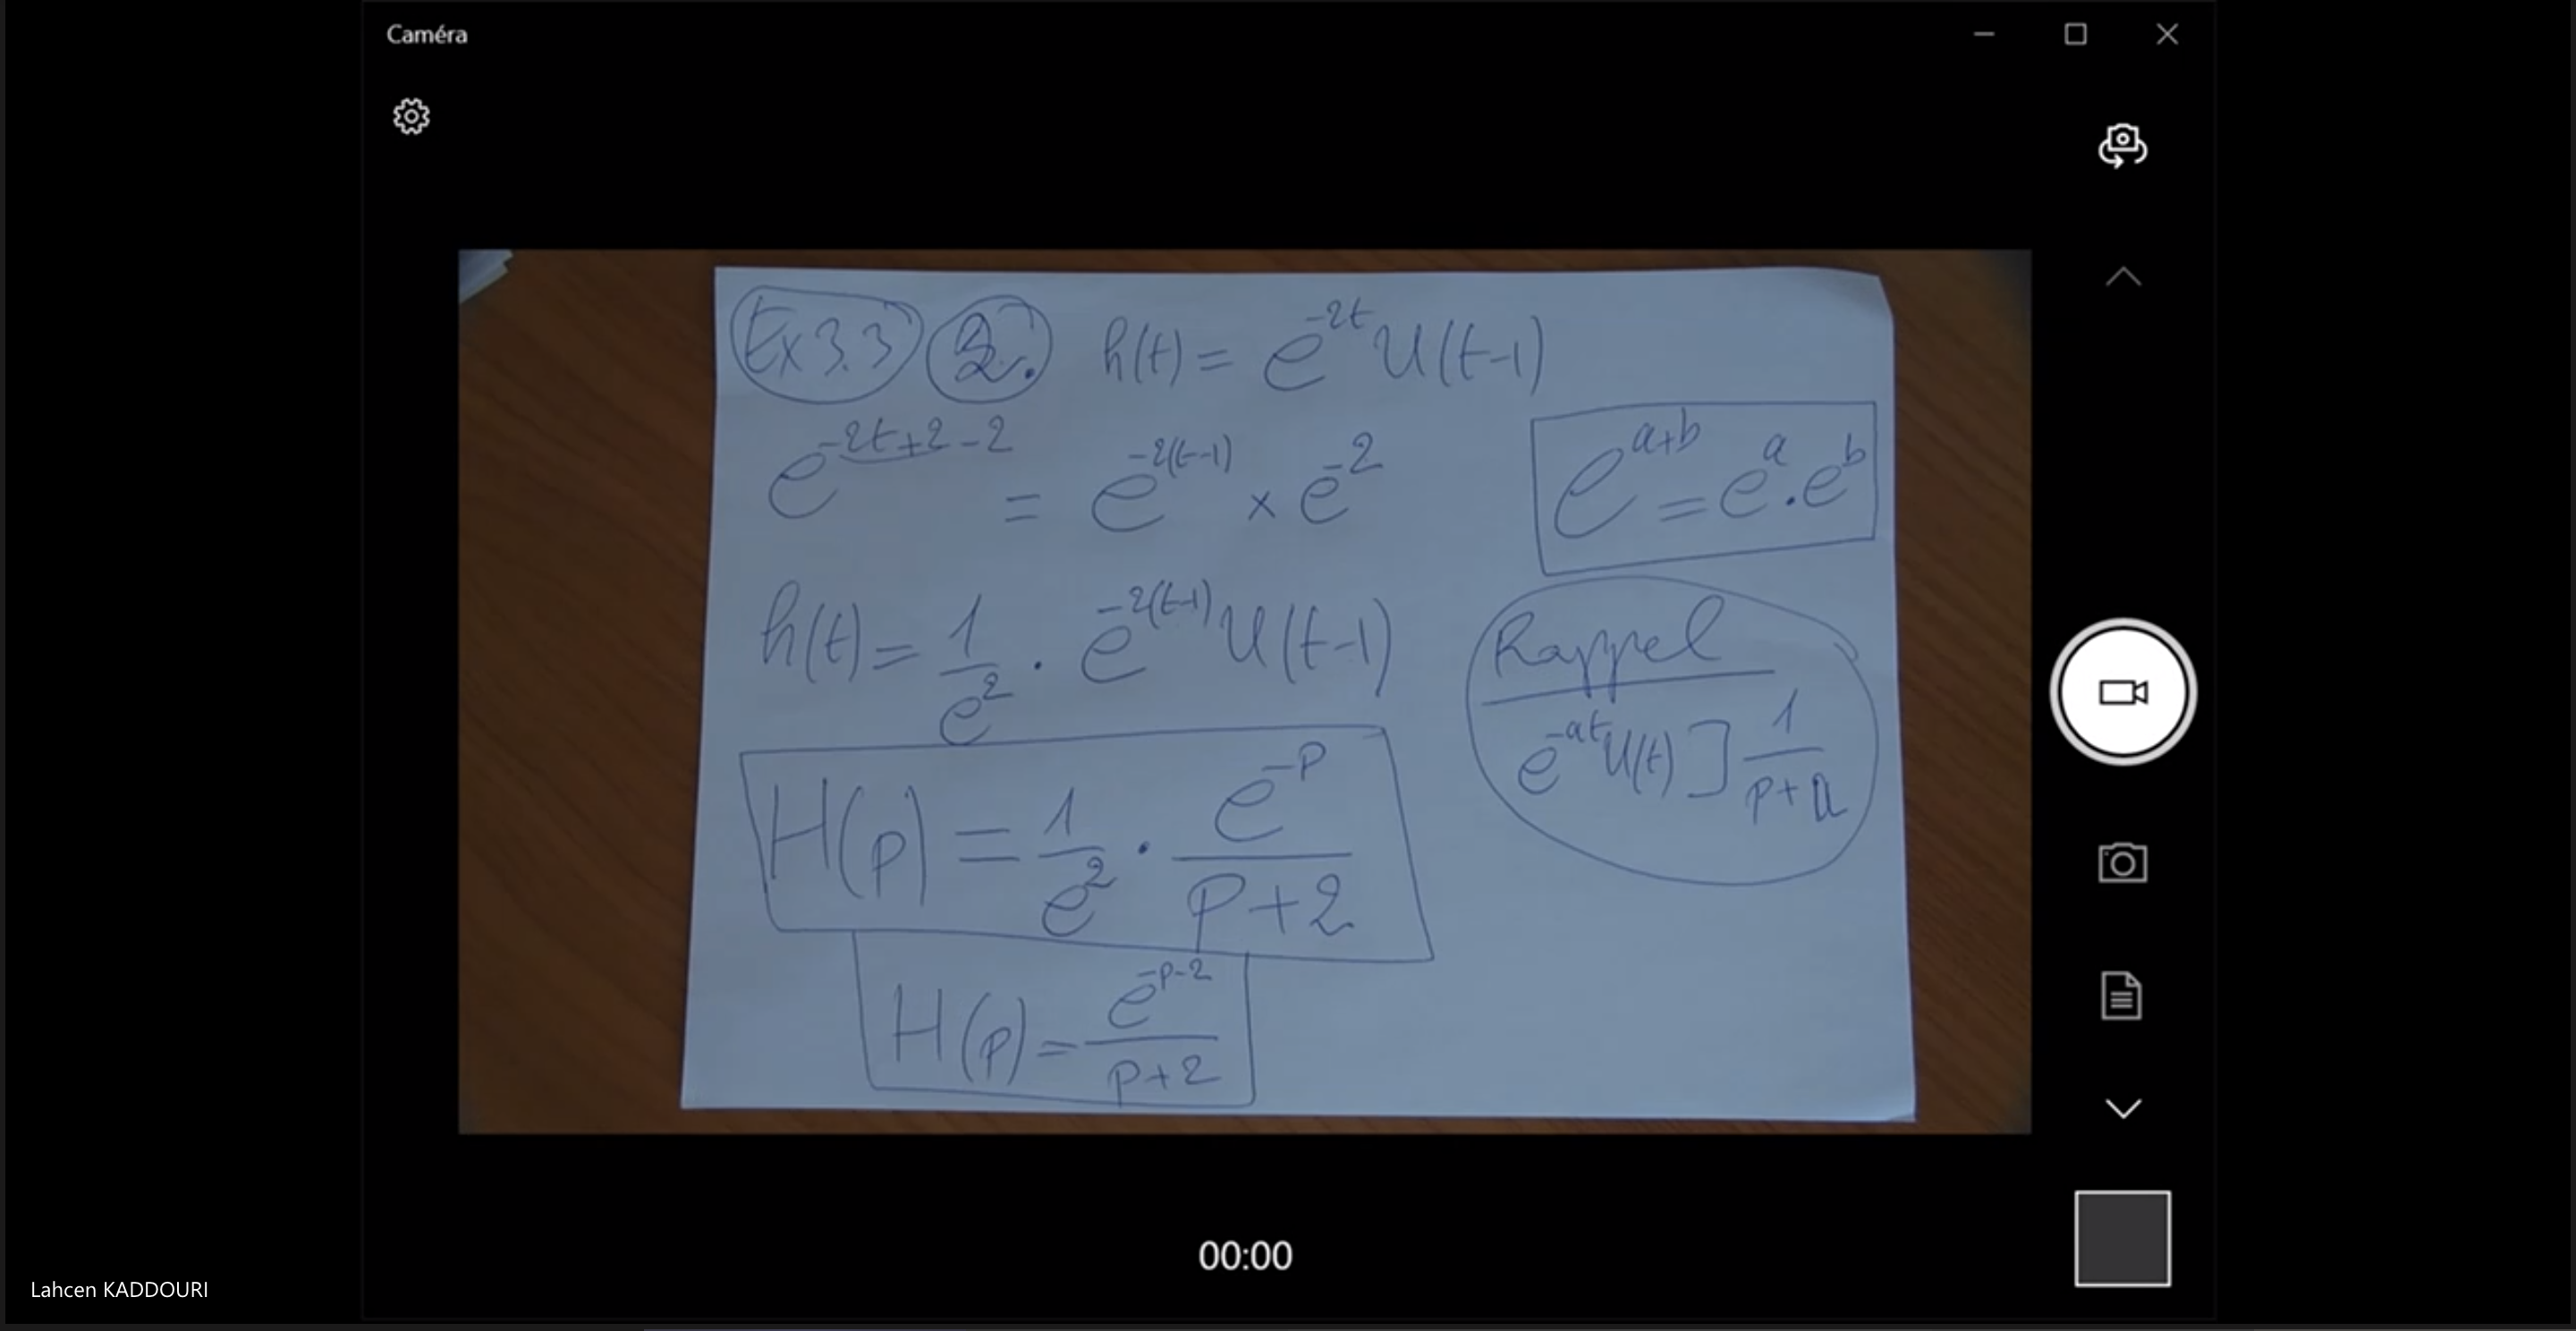 Caméra
Ex 3.3 2. h(t) = e^{-2t} U(t-1)
e^{-2t+2-2} = e^{-2(t-1)} × e^{-2}
e^{a+b} = e^a . e^b
h(t) = 1/e^2 . e^{-2(t-1)} U(t-1)
Rappel
e^{-at} U(t) ] 1/(p+a)
H(p) = 1/e^2 . e^{-p}/(p+2)
H(p) = e^{-p-2}/(p+2)
00:00
Lahcen KADDOURI